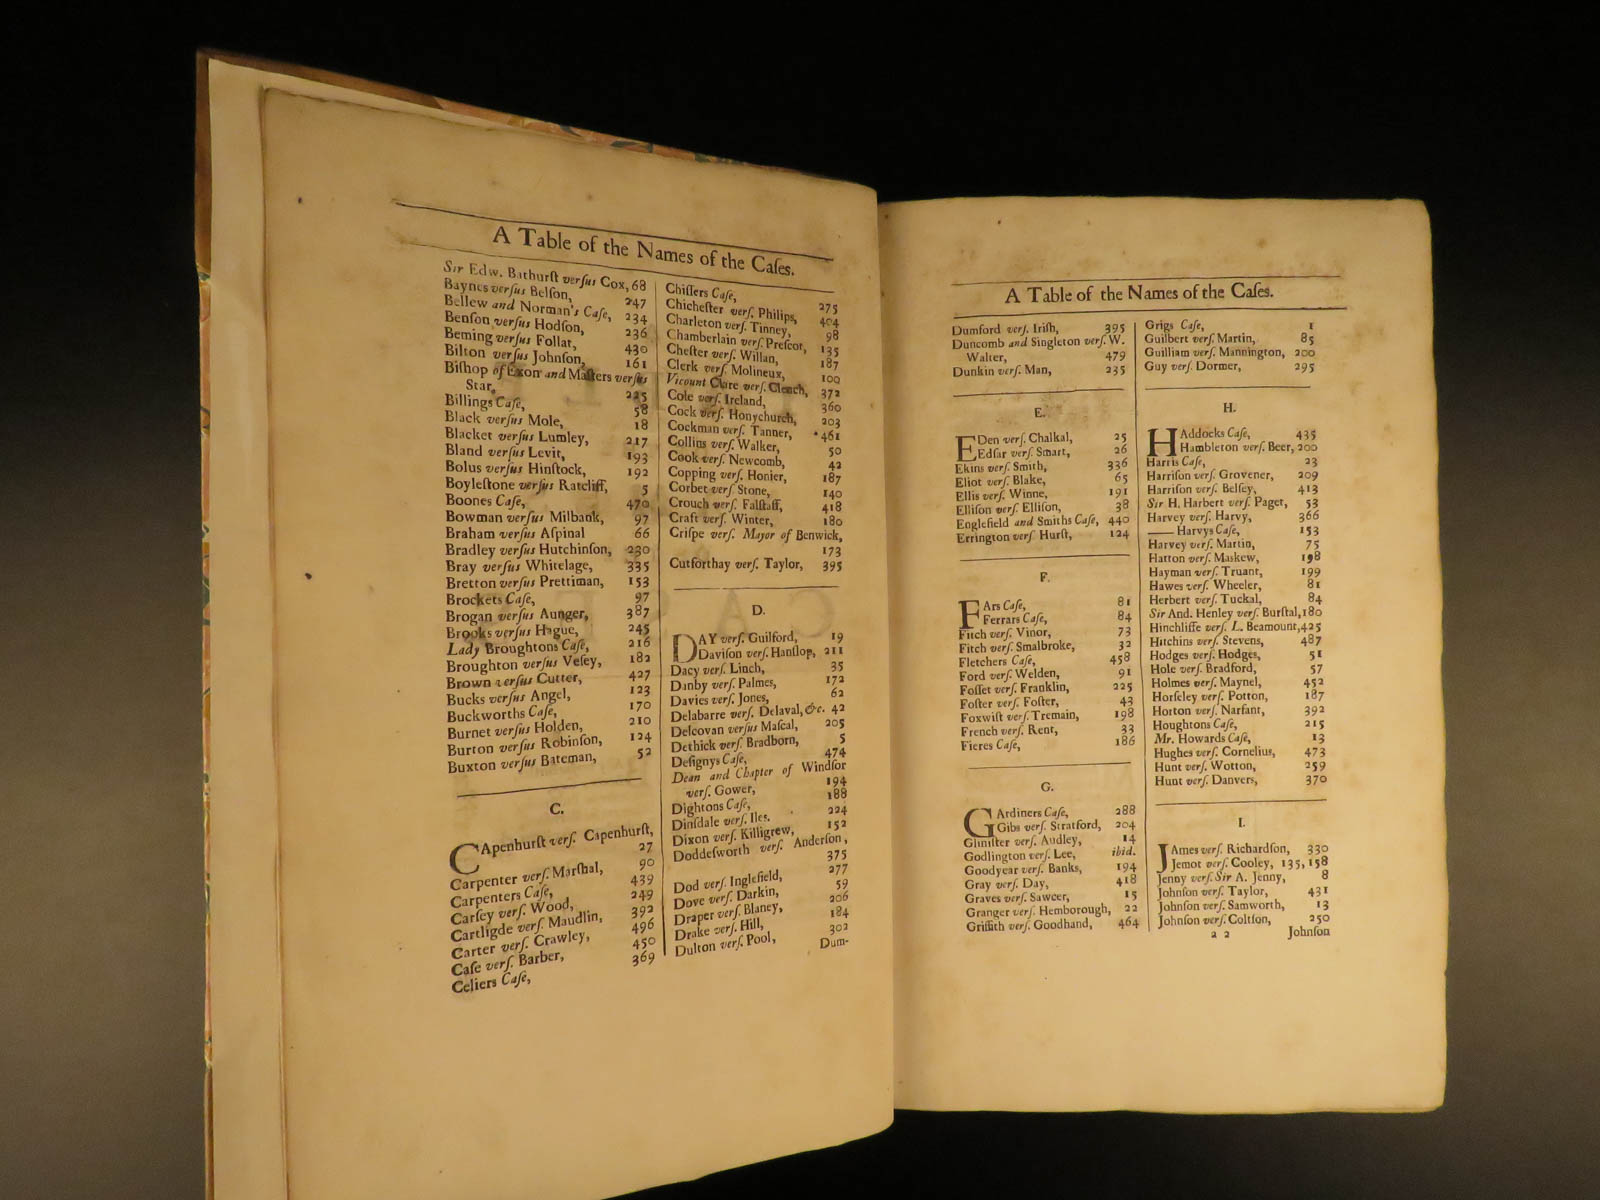 A Table of the Names of the Caſes.
Sir Edw. Bathurſt verſus Cox, 68
Baynes verſus Belſon, 247
Bellew and Norman's Caſe, 234
Benſon verſus Hodſon, 236
Beming verſus Follat, 430
Bilton verſus Johnſon, 161
Biſhop of Exon and Maſters verſus
Star, 225
Billings Caſe, 58
Black verſus Mole, 18
Blacket verſus Lumley, 217
Bland verſus Levit, 193
Bolus verſus Hinſtock, 192
Boyleſtone verſus Ratcliff, 5
Boones Caſe, 470
Bowman verſus Milbank, 97
Braham verſus Aſpinal 66
Bradley verſus Hutchinſon, 230
Bray verſus Whitelage, 335
Bretton verſus Prettiman, 153
Brockets Caſe, 97
Brogan verſus Aunger, 387
Brooks verſus Hague, 245
Lady Broughtons Caſe, 216
Broughton verſus Veſey, 182
Brown verſus Cutter, 427
Bucks verſus Angel, 123
Buckworths Caſe, 170
Burnet verſus Holden, 210
Burton verſus Robinſon, 124
Buxton verſus Bateman, 52
C.
CApenhurſt verſ. Capenhurſt,
27
Carpenter verſ. Marſhal, 90
Carpenters Caſe, 439
Carſey verſ. Wood, 249
Cartligde verſ. Maudlin, 392
Carter verſ. Crawley, 496
Caſe verſ. Barber, 450
Celiers Caſe, 369
Chiſſers Caſe, 275
Chicheſter verſ. Philips, 404
Charleton verſ. Tinney, 98
Chamberlain verſ. Preſcot, 135
Cheſter verſ. Willan, 187
Clerk verſ. Molineux, 100
Vicount Clare verſ. Cleach, 372
Cole verſ. Ireland, 360
Cock verſ. Honychurch, 203
Cockman verſ. Tanner, 461
Collins verſ. Walker, 50
Cook verſ. Newcomb, 42
Copping verſ. Honier, 187
Corbet verſ. Stone, 140
Crouch verſ. Falſtaff, 418
Craft verſ. Winter, 180
Criſpe verſ. Mayor of Benwick,
173
Cutforthay verſ. Taylor, 395
D.
DAY verſ. Guilford, 19
Daviſon verſ. Hanſlop, 211
Dacy verſ. Linch, 35
Danby verſ. Palmes, 172
Davies verſ. Jones, 62
Delabarre verſ. Delaval, &c. 42
Delcovan verſus Maſcal, 205
Dethick verſ. Bradborn, 5
Deſignys Caſe, 474
Dean and Chapter of Windſor
verſ. Gower, 194
Dightons Caſe, 188
Dinſdale verſ. Iles. 224
Dixon verſ. Killigrew, 152
Doddeſworth verſ. Anderſon,
375
Dod verſ. Inglefield, 277
Dove verſ. Darkin, 59
Draper verſ. Blaney, 206
Drake verſ. Hill, 184
Dulton verſ. Pool, 302
Dum-
A Table of the Names of the Caſes.
Dumford verſ. Iriſh, 395
Duncomb and Singleton verſ. W.
Walter, 479
Dunkin verſ. Man, 235
E.
EDen verſ. Chalkal, 25
Edſar verſ. Smart, 26
Ekins verſ. Smith, 336
Eliot verſ. Blake, 65
Ellis verſ. Winne, 191
Elliſon verſ. Elliſon, 38
Englefield and Smiths Caſe, 440
Errington verſ. Hurſt, 124
F.
FArs Caſe, 81
Ferrars Caſe, 84
Fitch verſ. Vinor, 73
Fitch verſ. Smalbroke, 32
Fletchers Caſe, 458
Ford verſ. Welden, 91
Foſſet verſ. Franklin, 225
Foſter verſ. Foſter, 43
Foxwiſt verſ. Tremain, 198
French verſ. Rent, 33
Fieres Caſe, 186
G.
GArdiners Caſe, 288
Gibs verſ. Stratford, 204
Glimiſter verſ. Audley, 14
Godlington verſ. Lee, ibid.
Goodyear verſ. Banks, 194
Gray verſ. Day, 418
Graves verſ. Sawcer, 15
Granger verſ. Hemborough, 22
Griffith verſ. Goodhand, 464
Grigs Caſe, 1
Guilbert verſ. Martin, 85
Guilliam verſ. Mannington, 200
Guy verſ. Dormer, 295
H.
HAddocks Caſe, 435
Hambleton verſ. Beer, 200
Harris Caſe, 23
Harriſon verſ. Grovener, 209
Harriſon verſ. Belſey, 413
Sir H. Harbert verſ. Paget, 53
Harvey verſ. Harvy, 366
—— Harvys Caſe, 153
Harvey verſ. Martin, 75
Hatton verſ. Maskew, 198
Hayman verſ. Truant, 199
Hawes verſ. Wheeler, 81
Herbert verſ. Tuckal, 84
Sir And. Henley verſ. Burſtal, 180
Hinchliffe verſ. L. Beamount, 425
Hitchins verſ. Stevens, 487
Hodges verſ. Hodges, 51
Hole verſ. Bradford, 57
Holmes verſ. Maynel, 452
Horſeley verſ. Potton, 187
Horton verſ. Narfant, 392
Houghtons Caſe, 215
Mr. Howards Caſe, 13
Hughes verſ. Cornelius, 473
Hunt verſ. Wotton, 259
Hunt verſ. Danvers, 370
I.
JAmes verſ. Richardſon, 330
Jemot verſ. Cooley, 135, 158
Jenny verſ. Sir A. Jenny, 8
Johnſon verſ. Taylor, 431
Johnſon verſ. Samworth, 13
Johnſon verſ. Coltſon, 250
a 2 Johnſon